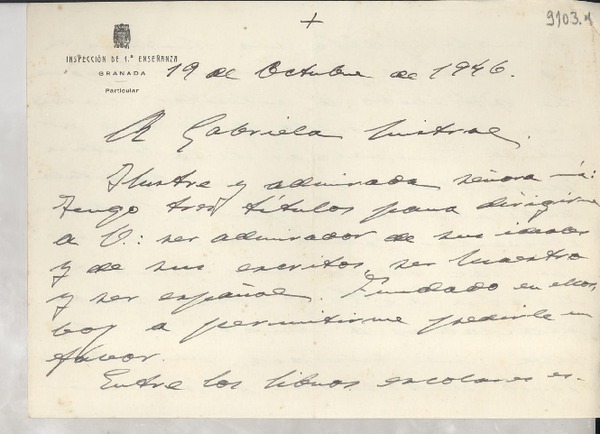 +
9103.4
INSPECCIÓN DE 1.ª ENSEÑANZA
GRANADA
Particular
19 de Octubre de 1946.
A Gabriela Mistral.
Ilustre y admirada señora mía:
Tengo tres títulos para dirigirme
a V.: ser admirador de sus ideales
y de sus escritos, ser Maestro
y ser español. Fundado en ellos,
voy a permitirme pedirle un
favor.
Entre los libros escolares es-